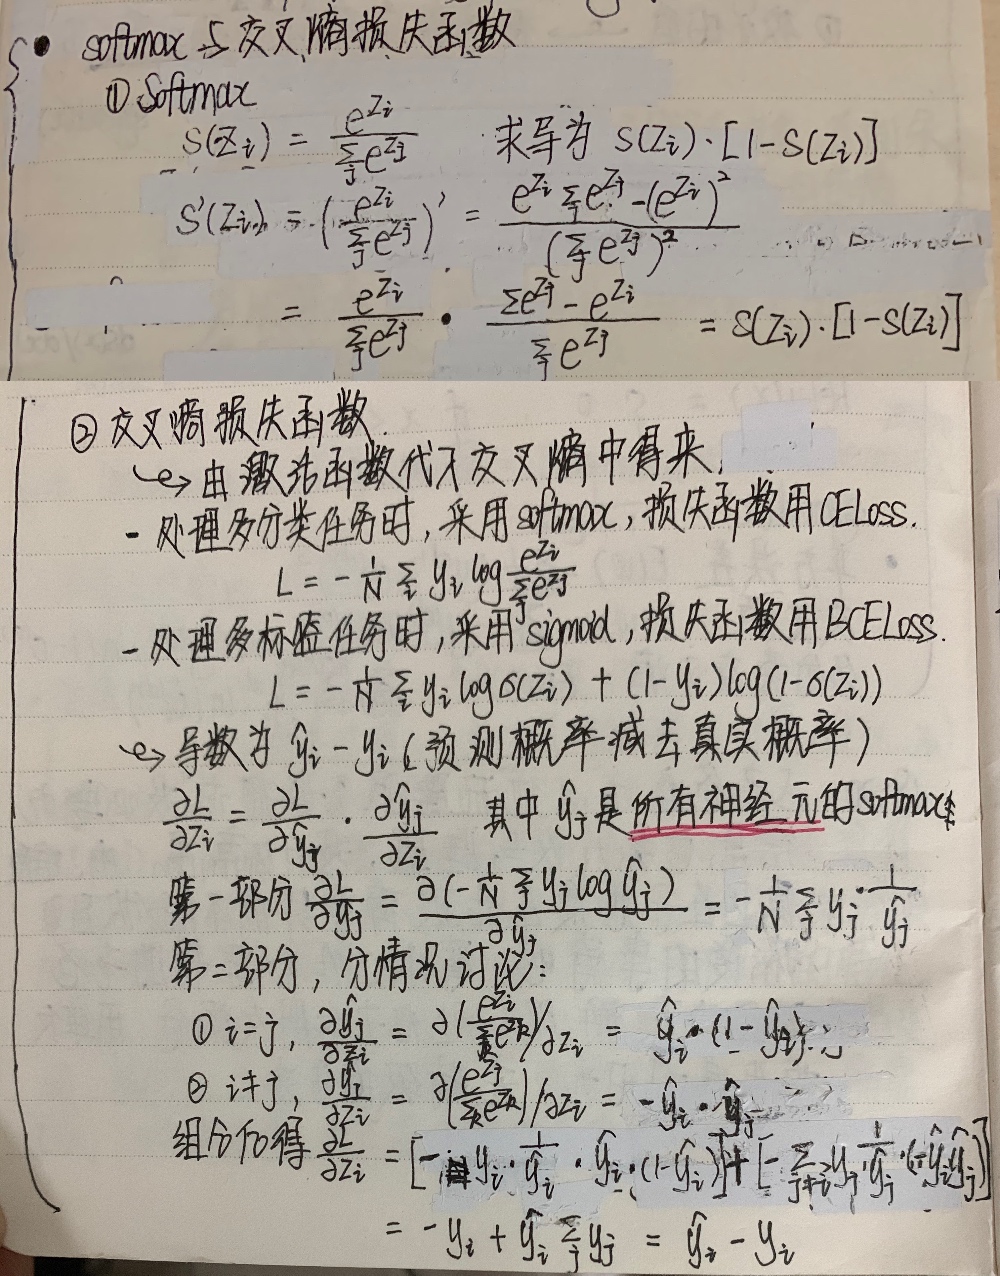 • softmax 与交叉熵损失函数
① Softmax
S(Zᵢ) = e^{Zᵢ} / Σⱼ e^{Zⱼ}  求导为 S(Zᵢ)·[1-S(Zᵢ)]
S'(Zᵢ) = (e^{Zᵢ} / Σⱼ e^{Zⱼ})' = (e^{Zᵢ} Σⱼ e^{Zⱼ} - (e^{Zᵢ})²) / (Σⱼ e^{Zⱼ})²
= e^{Zᵢ} / Σⱼ e^{Zⱼ} · (Σe^{Zⱼ} - e^{Zᵢ}) / Σⱼ e^{Zⱼ} = S(Zᵢ)·[1-S(Zᵢ)]
② 交叉熵损失函数
↪ 由激活函数代入交叉熵中得来.
- 处理多分类任务时, 采用softmax, 损失函数用CELoss.
L = -1/N Σᵢ yᵢ log e^{Zᵢ} / Σⱼ e^{Zⱼ}
- 处理多标签任务时, 采用sigmoid, 损失函数用BCELoss.
L = -1/N Σᵢ yᵢ log σ(Zᵢ) + (1-yᵢ) log(1-σ(Zᵢ))
↪ 导数为 ŷᵢ - yᵢ (预测概率减去真实概率)
∂L/∂Zᵢ = ∂L/∂ŷⱼ · ∂ŷⱼ/∂Zᵢ  其中 ŷⱼ 是所有神经元的softmax
第一部分 ∂L/∂yⱼ = ∂(-1/N Σⱼ yⱼ log ŷⱼ) / ∂ŷⱼ = -1/N Σⱼ yⱼ · 1/ŷⱼ
第二部分, 分情况讨论:
① i=j, ∂ŷⱼ/∂Zᵢ = ∂(e^{Zᵢ} / Σₖ e^{Zₖ})/∂Zᵢ = ŷᵢ·(1-ŷᵢ)
② i≠j, ∂ŷⱼ/∂Zᵢ = ∂(e^{Zⱼ} / Σₖ e^{Zₖ})/∂Zᵢ = -ŷᵢ·ŷⱼ
组合得 ∂L/∂Zᵢ = [-yᵢ · 1/ŷᵢ · ŷᵢ·(1-ŷᵢ)] + [-Σ_{j≠i} yⱼ 1/ŷⱼ·(-ŷᵢŷⱼ)]
= -yᵢ + ŷᵢ Σⱼ yⱼ = ŷᵢ - yᵢ